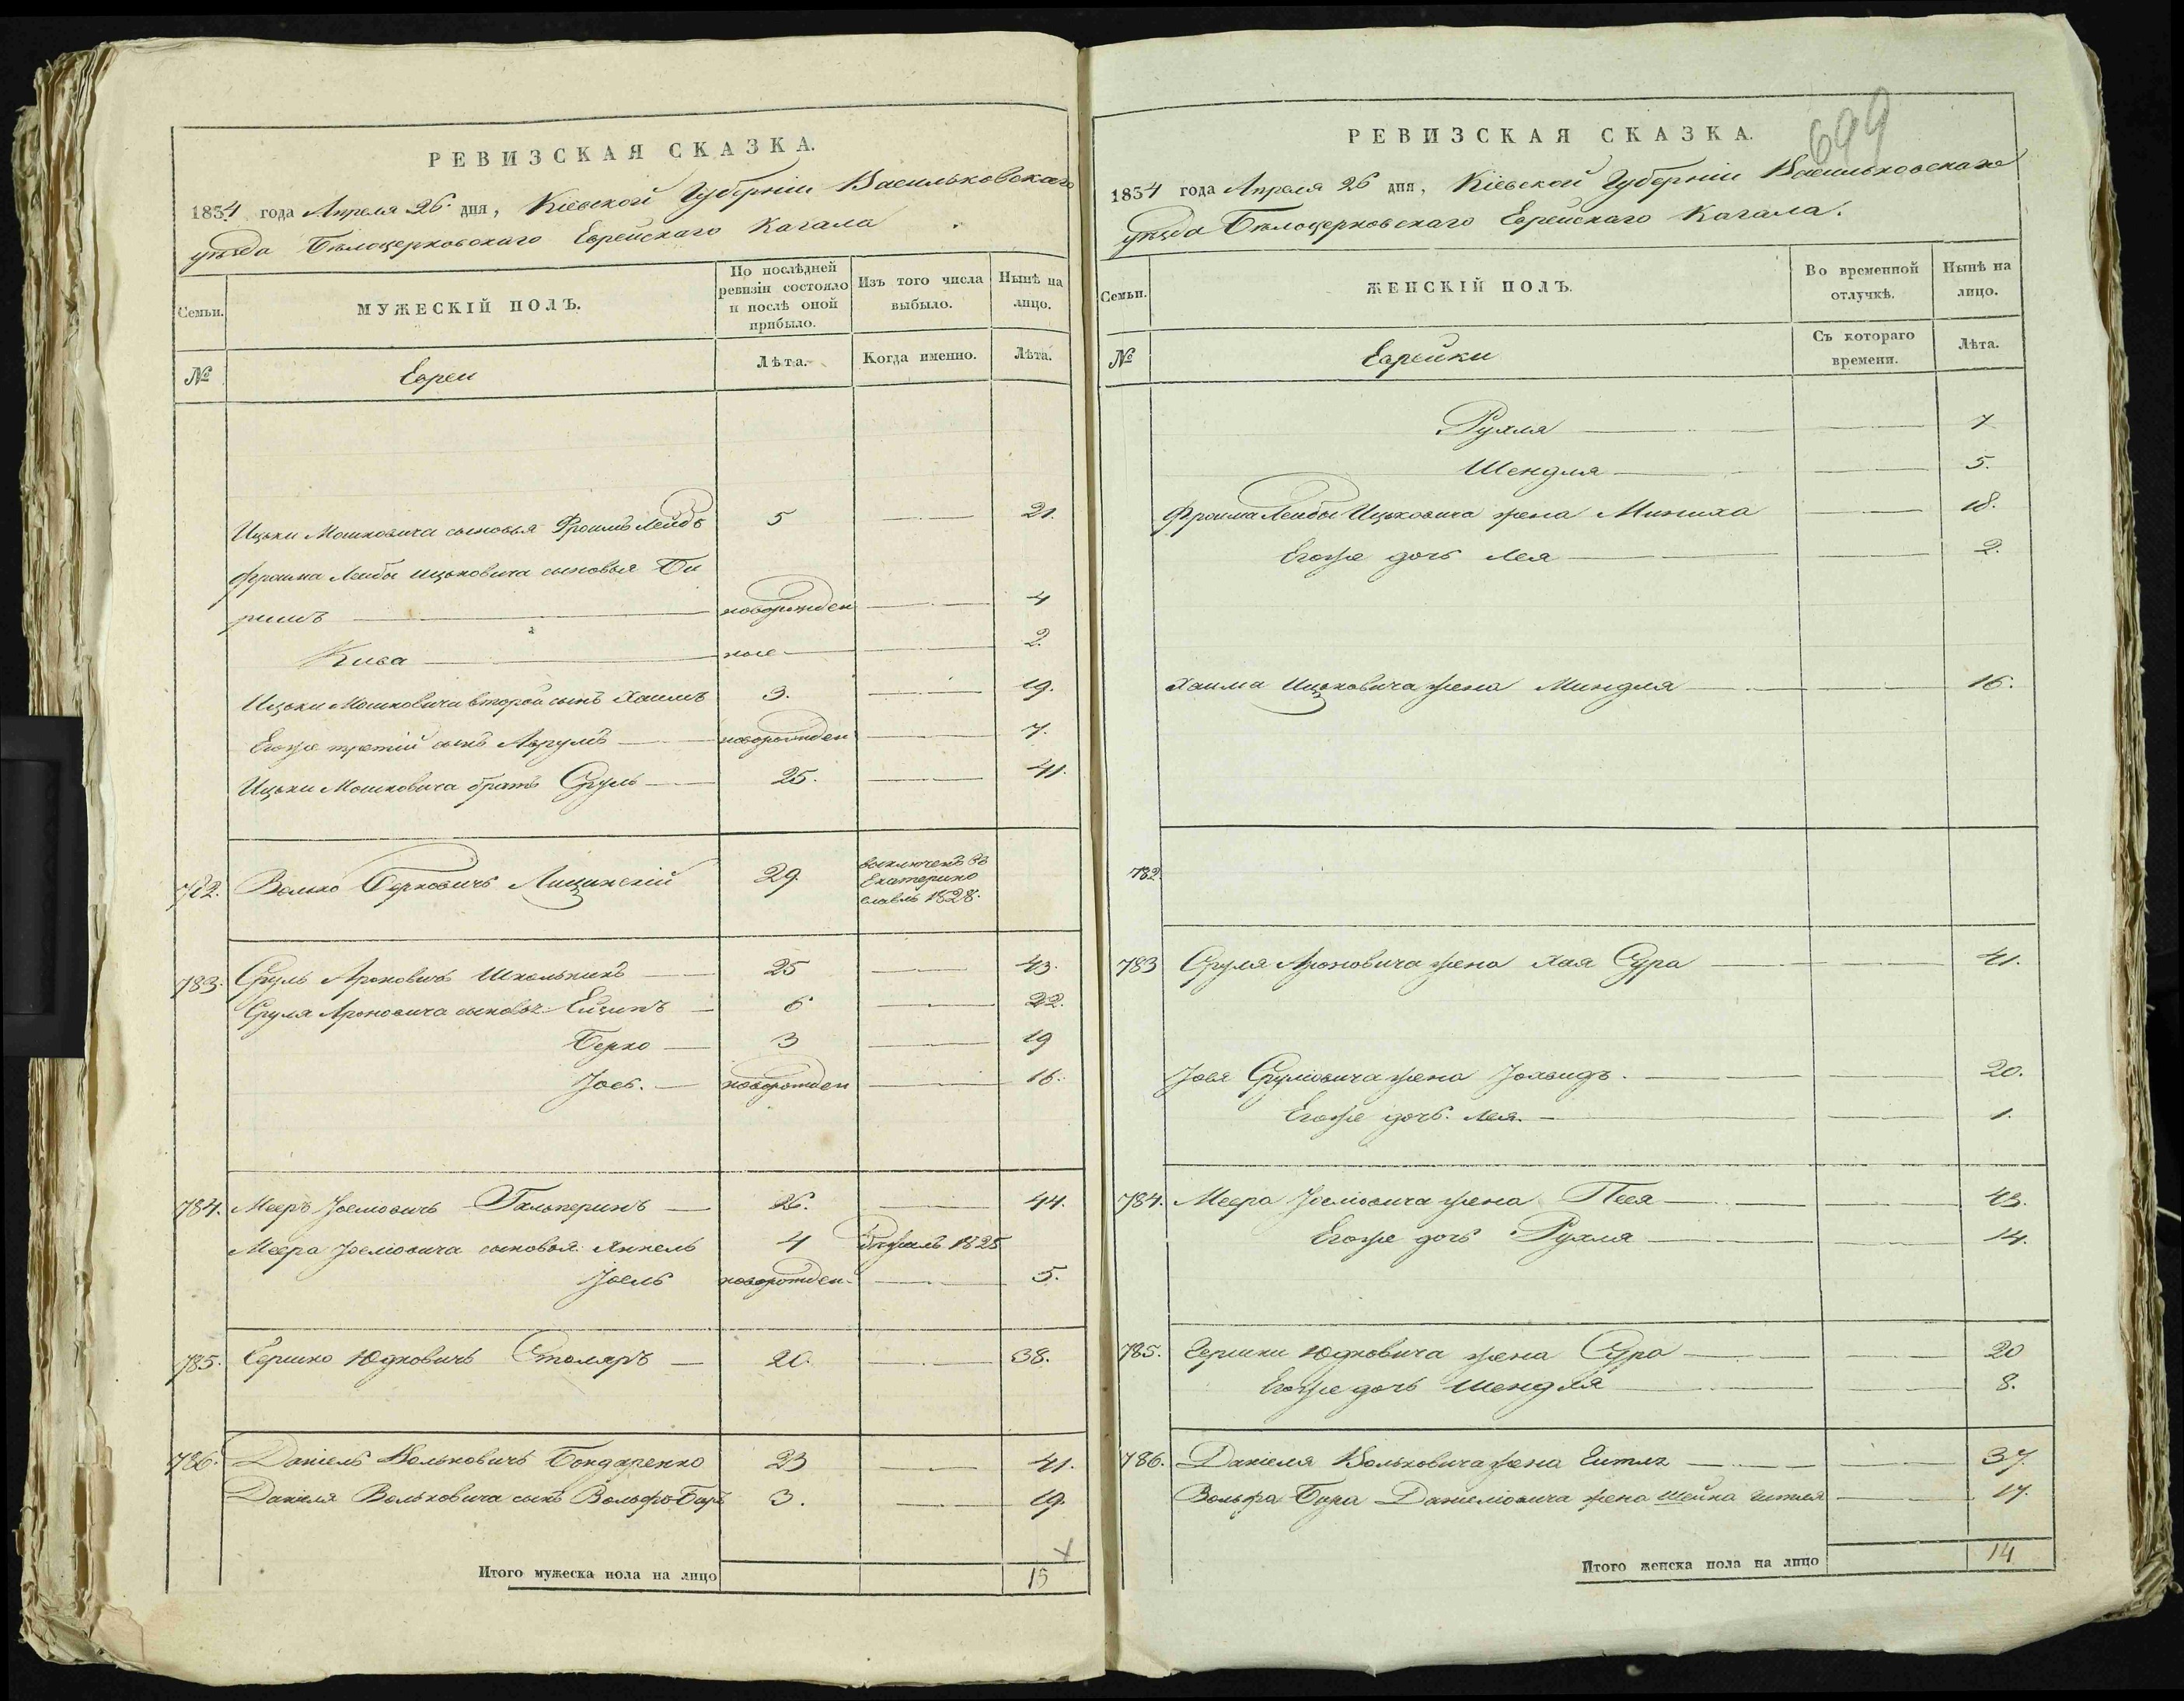 РЕВИЗСКАЯ СКАЗКА.
1834 года Апреля 26 дня, Кіевской Губерніи Васильковскаго
уѣзда Бѣлоцерковскаго Еврейскаго Кагала
Семьи.
МУЖЕСКІЙ ПОЛЪ.
По послѣдней ревизіи состояло и послѣ оной прибыло.
Изъ того числа выбыло.
Нынѣ на лицо.
№
Евреи
Лѣта.
Когда именно.
Лѣта.
Ицьки Мошковича сыновья Фроимъ Лейбъ 5 21.
Фроима Лейбы Ицьковича сыновья Би
ришъ новорожден 4
Кива ные 2.
Ицьки Мошковича второй сынъ Хаимъ 3. 19.
Егоже третій сынъ Аврумъ новорожден 7.
Ицьки Мошковича братъ Сруль 25. 41.
782. Волько Берковичъ Лищинскій 29. выключенъ въ
Екатерино
славль 1828.
783. Сруль Ароновичъ Школьникъ 25 43.
Сруля Ароновича сыновья: Ейзикъ 6 22.
Берко 3 19
Іось. новорожден 16.
784. Мееръ Іоеліовичъ Гальперинъ 26. 44.
Меера Іоеліовича сыновья: Янкель 4 бѣжалъ 1825
Іоель новорожден. 5.
785. Гершко Юдковичъ Столяръ 20. 38.
786. Даніель Вольковичъ Бондаренко 23 41.
Даніеля Вольковича сынъ Вольфъ-Беръ 3. 19.
Итого мужеска пола на лицо 15
699
РЕВИЗСКАЯ СКАЗКА.
1834 года Апреля 26 дня, Кіевской Губерніи Васильковскаго
уѣзда Бѣлоцерковскаго Еврейскаго Кагала.
Семьи.
ЖЕНСКІЙ ПОЛЪ.
Во временной отлучкѣ.
Нынѣ на лицо.
№
Еврейки
Съ котораго времени.
Лѣта.
Рухля 7
Шендля 5.
Фроима Лейбы Ицьковича жена Миниха 18.
Егоже дочь Лея 2.
Хаима Ицьковича жена Миндля 16.
782.
783 Сруля Ароновича жена Хая Сура 41.
Іося Сруліовича жена Іохвидъ. 20.
Егоже дочь Лея. 1.
784. Меера Іоеліовича жена Песя 43.
Егоже дочь Рухля 14.
785. Гершки Юдковича жена Сура 20
Егоже дочь Шендля 8.
786. Даніеля Вольковича жена Гитля 37.
Вольфа Бера Даніеліовича жена Шейна Гитля 17.
Итого женска пола на лицо 14